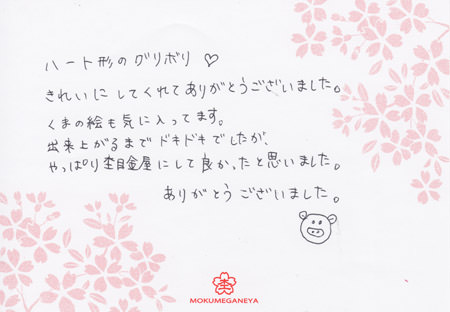 ハート形のグリボリ ♡
きれいにしてくれてありがとうございました。
くまの絵も気に入ってます。
出来上がるまでドキドキでしたが、
やっぱり杢目金屋にして良かったと思いました。
ありがとうございました。
杢
MOKUMEGANEYA